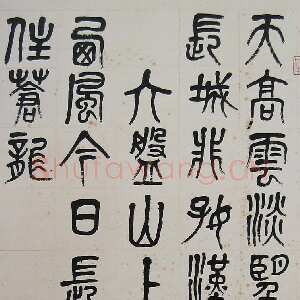 天高雲淡望
長城非好漢
六盤山上
西風今日長
住蒼龍